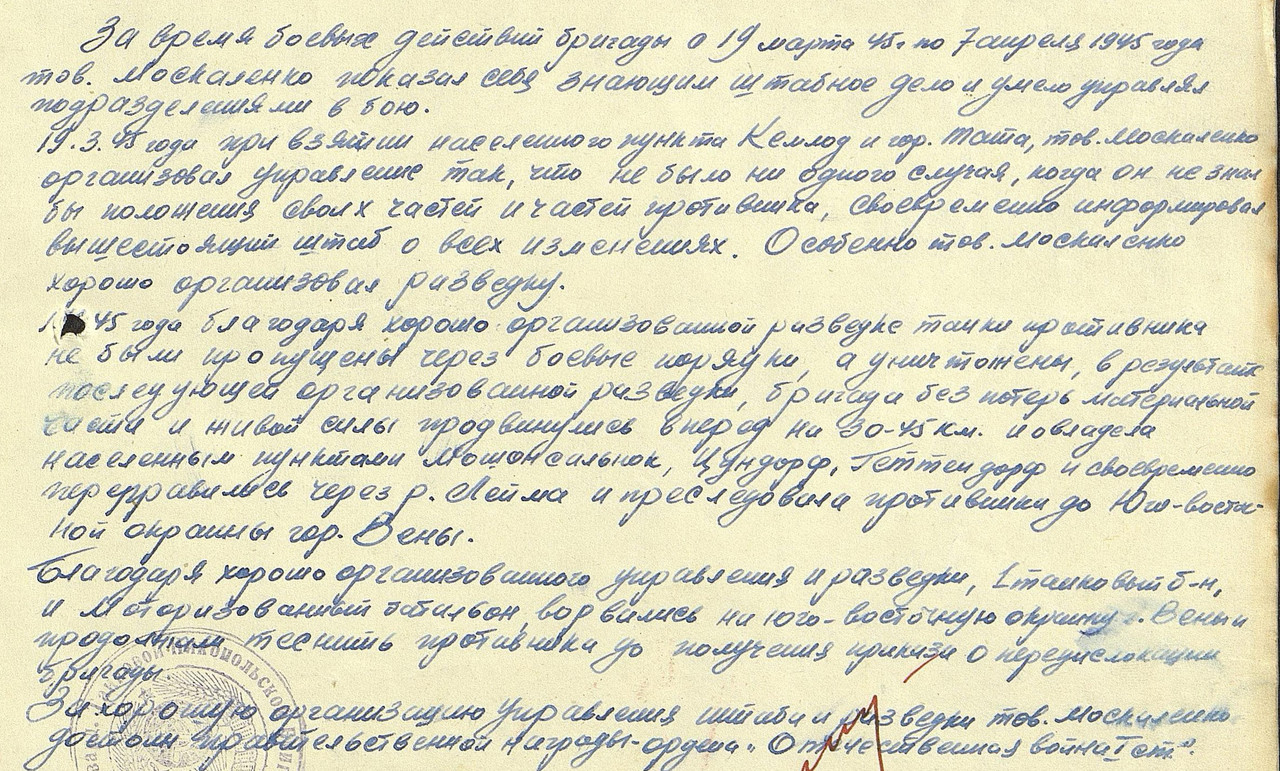 За время боевых действий бригады с 19 марта 45г по 7 апреля 1945 года
тов. Москаленко показал себя знающим штабное дело и умело управлял
подразделениями в бою.
19.3.45 года при взятии населенного пункта Кемлод и гор. Тата, тов. Москаленко
организовал управление так, что не было ни одного случая, когда он не знал
бы положения своих частей и частей противника, своевременно информировал
вышестоящий штаб о всех изменениях. Особенно тов. Москаленко
хорошо организовал разведку.
45 года благодаря хорошо организованной разведке танки противника
не были пропущены через боевые порядки, а уничтожены, в результате
последующей организованной разведки, бригада без потерь материальной
части и живой силы продвинулись вперед на 30-45 км. и овладела
населенным пунктами Мошонсальнок, Цундорф, Геттендорф и своевременно
переправились через р. Лейта и преследовала противника до Юго-восточ-
ной окраины гор. Вены.
Благодаря хорошо организованного управления и разведки, 1 танковый б-н,
и Моторизованный батальон, ворвались на юго-восточную окраину г. Вены и
продолжали теснить противника до получения приказа о передислокации
бригады.
За хорошую организацию управления штаба и разведки тов. Москаленко
достоин правительственной награды-ордена „Отечественная война I ст".
НИКОПОЛЬСКО